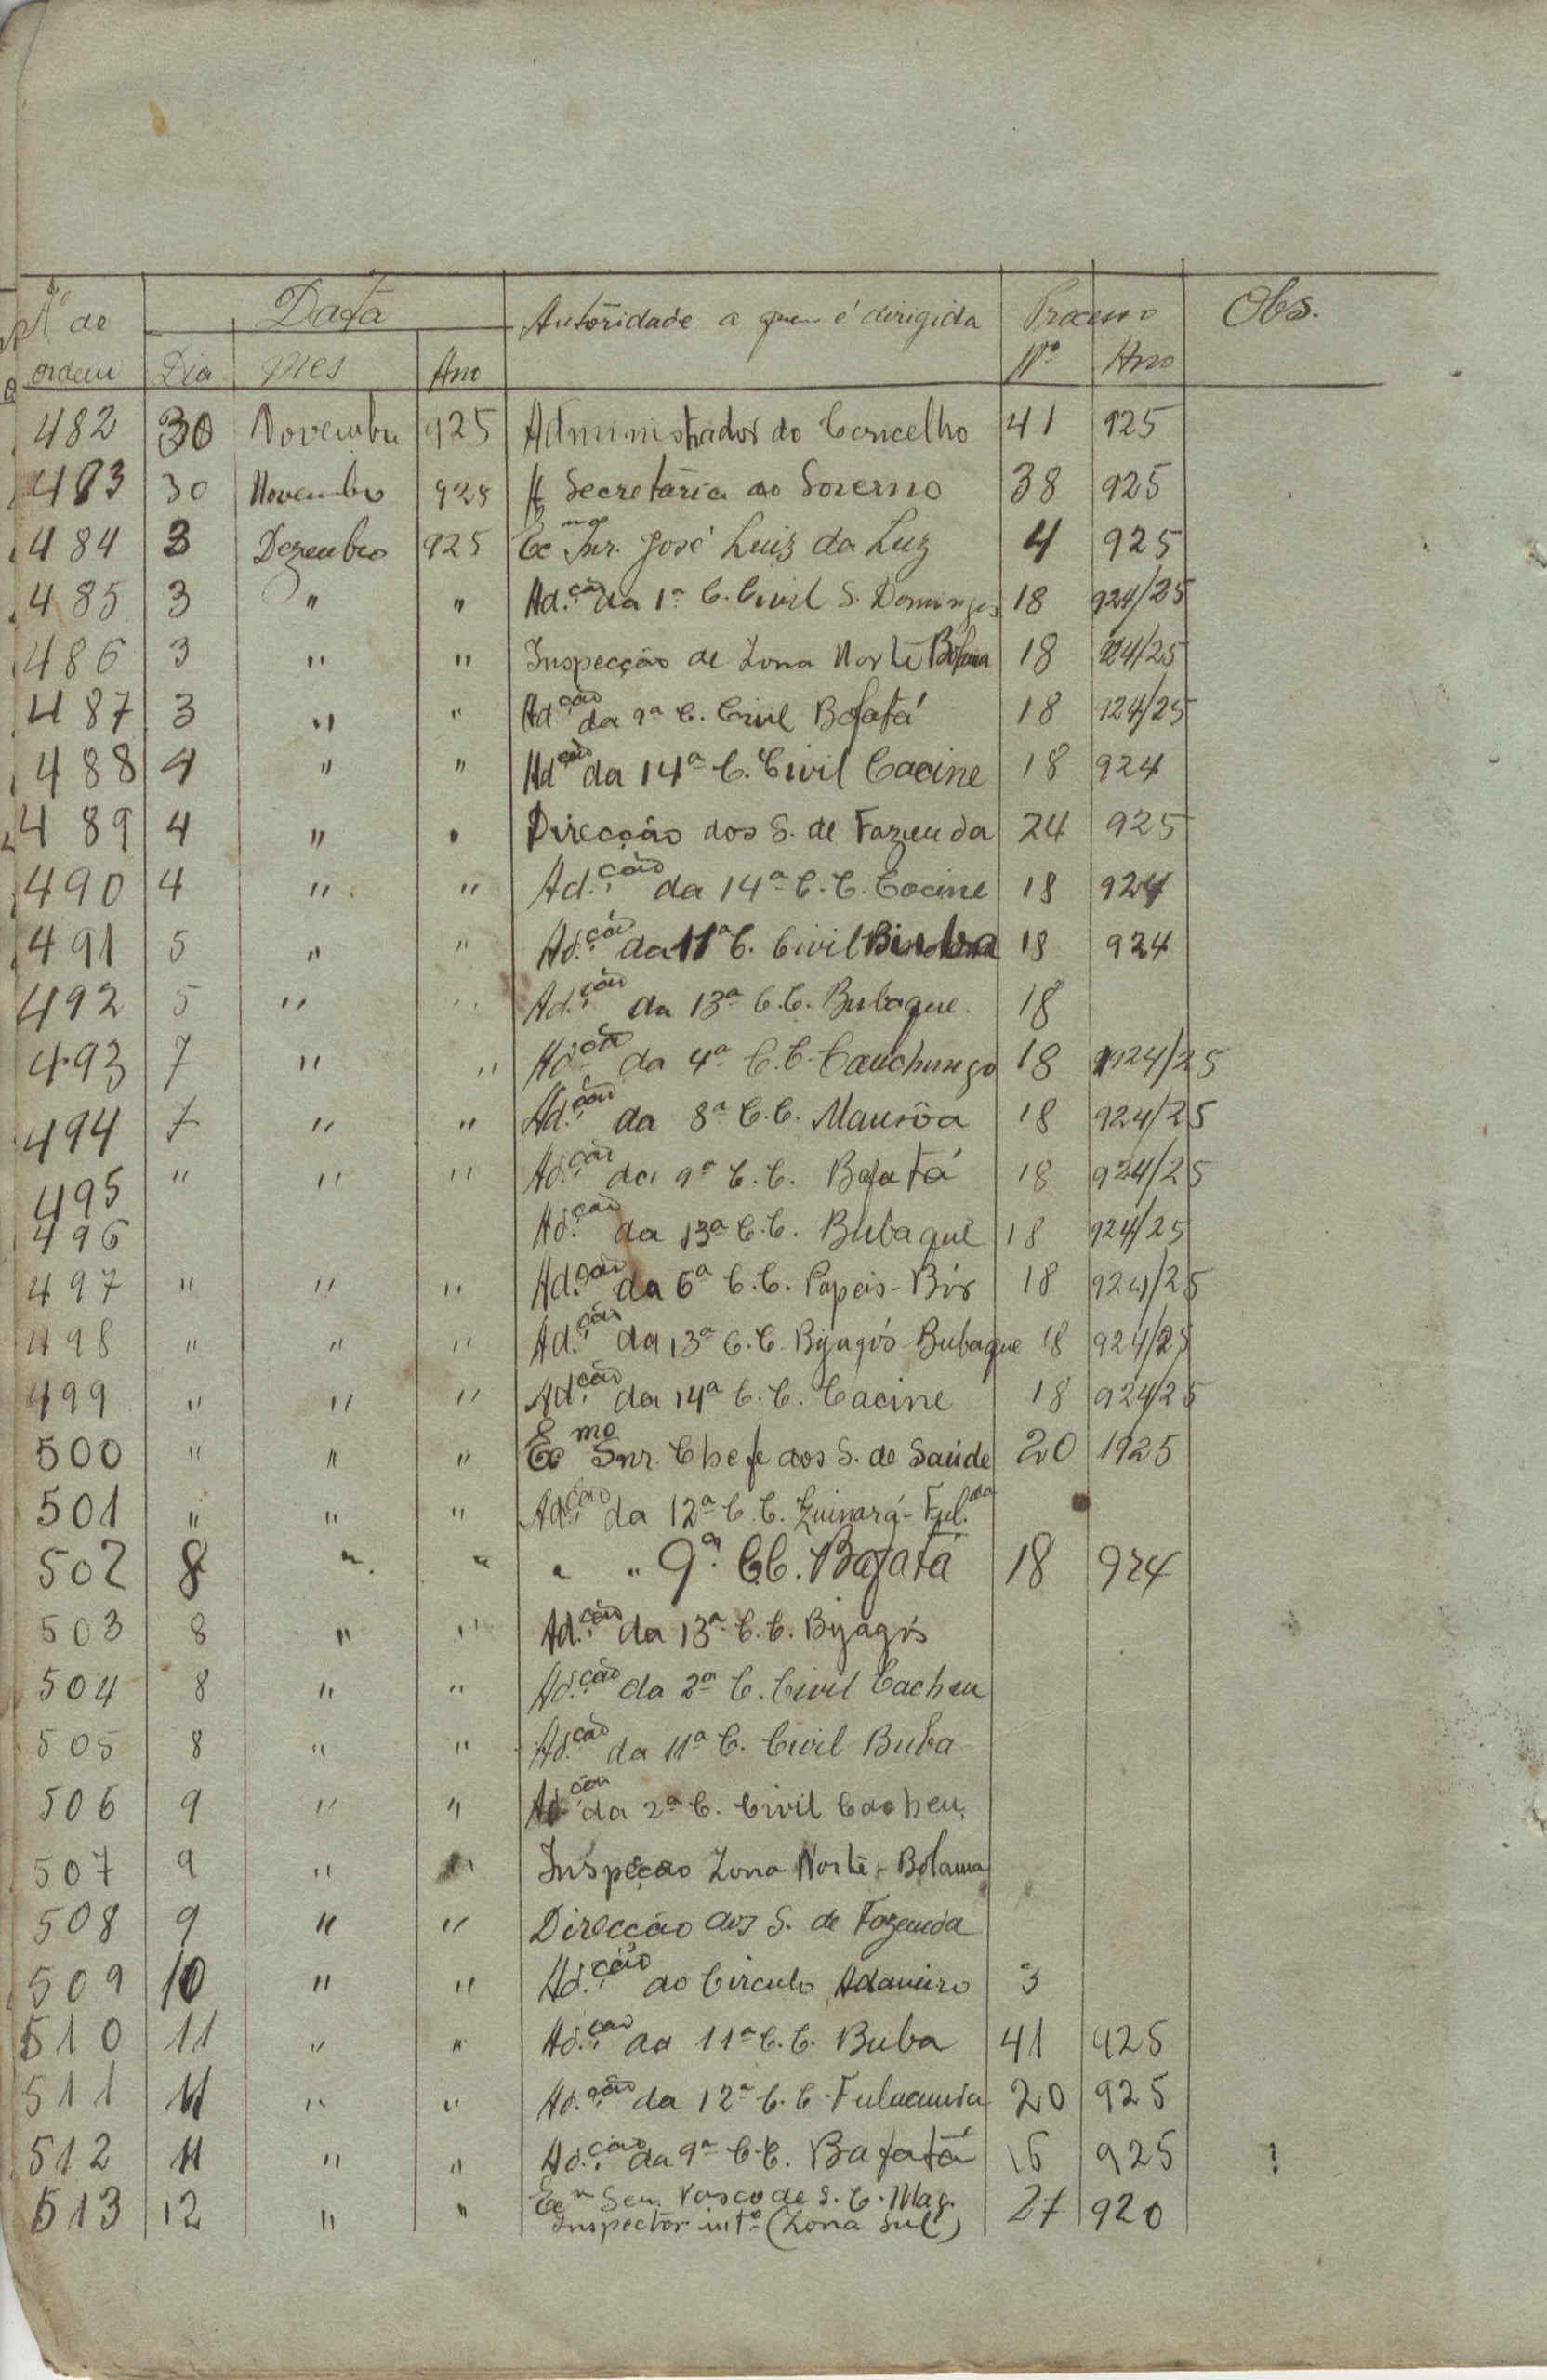 Nº de Data Autoridade a quem é dirigida Processo Obs.
ordem Dia Mês Ano Nº Ano
482 30 Novembro 925 Administrador do Concelho 41 925
483 30 Novembro 925 Secretaria do Governo 38 925
484 3 Dezembro 925 Exmo Snr. José Luiz da Luz 4 925
485 3 " " Ad.ção da 1ª C. Civil S. Domingos 18 924/25
486 3 " " Inspecção de Zona Norte Bolama 18 924/25
487 3 " " Ad.ção da 9ª C. Civil Bafatá 18 924/25
488 4 " " Ad.ção da 14ª C. Civil Cacine 18 924
489 4 " " Direcção dos S. de Fazenda 24 925
490 4 " " Ad.ção da 14ª C. C. Cacine 18 924
491 5 " " Ad.ção da 11ª C. Civil 18 924
492 5 " " Ad.ção da 13ª C.C. Bubaque. 18
493 7 " " Ad.ção da 4ª C.C. Canchungo 18 1924/25
494 7 " " Ad.ção da 8ª C.C. Mansôa 18 924/25
495 " " " Ad.ção da 9ª C.C. Bafatá 18 924/25
496 Ad.ção da 13ª C.C. Bubaque 18 924/25
497 " " " Ad.ção da 6ª C.C. Papeis - Bór 18 924/25
498 " " " Ad.ção da 13ª C.C. Bijagós Bubaque 18 924/25
499 " " " Ad.ção da 14ª C.C. Cacine 18 924/25
500 " " " Exmo Snr. Chefe dos S. de Saúde 20 1925
501 " " " Ad.ção da 12ª C.C. Quinará - Ful.da
502 8 " " " " 9ª C.C. Bafatá 18 924
503 8 " " Ad.ção da 13ª C.C. Bijagós
504 8 " " Ad.ção da 2ª C. Civil Cacheu
505 8 " " Ad.ção da 11ª C. Civil Buba
506 9 " " Ad.ção da 2ª C. Civil Cacheu.
507 9 " " Inspeção Zona Norte - Bolama
508 9 " " Direcção dos S. de Fazenda
509 10 " " Ad.ção do Circulo Adaneiro 3
510 11 " " Ad.ção da 11ª C.C. Buba 41 925
511 11 " " Ad.ção da 12ª C.C. Fulacunda 20 925
512 11 " " Ad.ção da 9ª C.C. Bafatá 16 925 !
513 12 " " Sen. Vasco de S. C. Mag. 27 920
Inspector intº (Zona Sul)